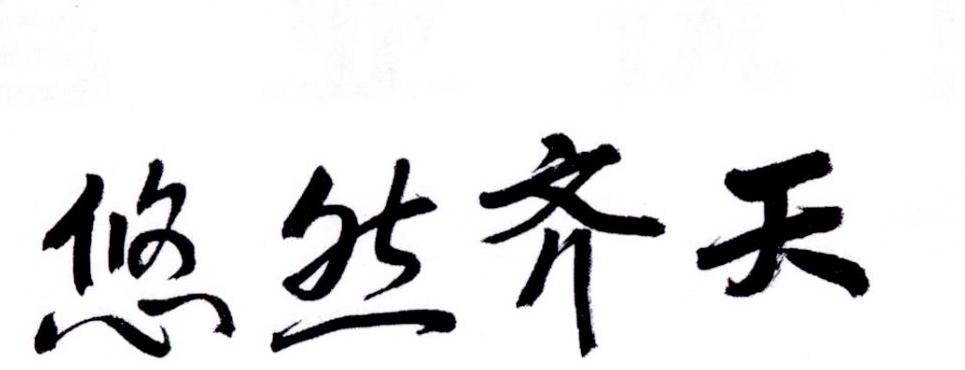 悠然齐天